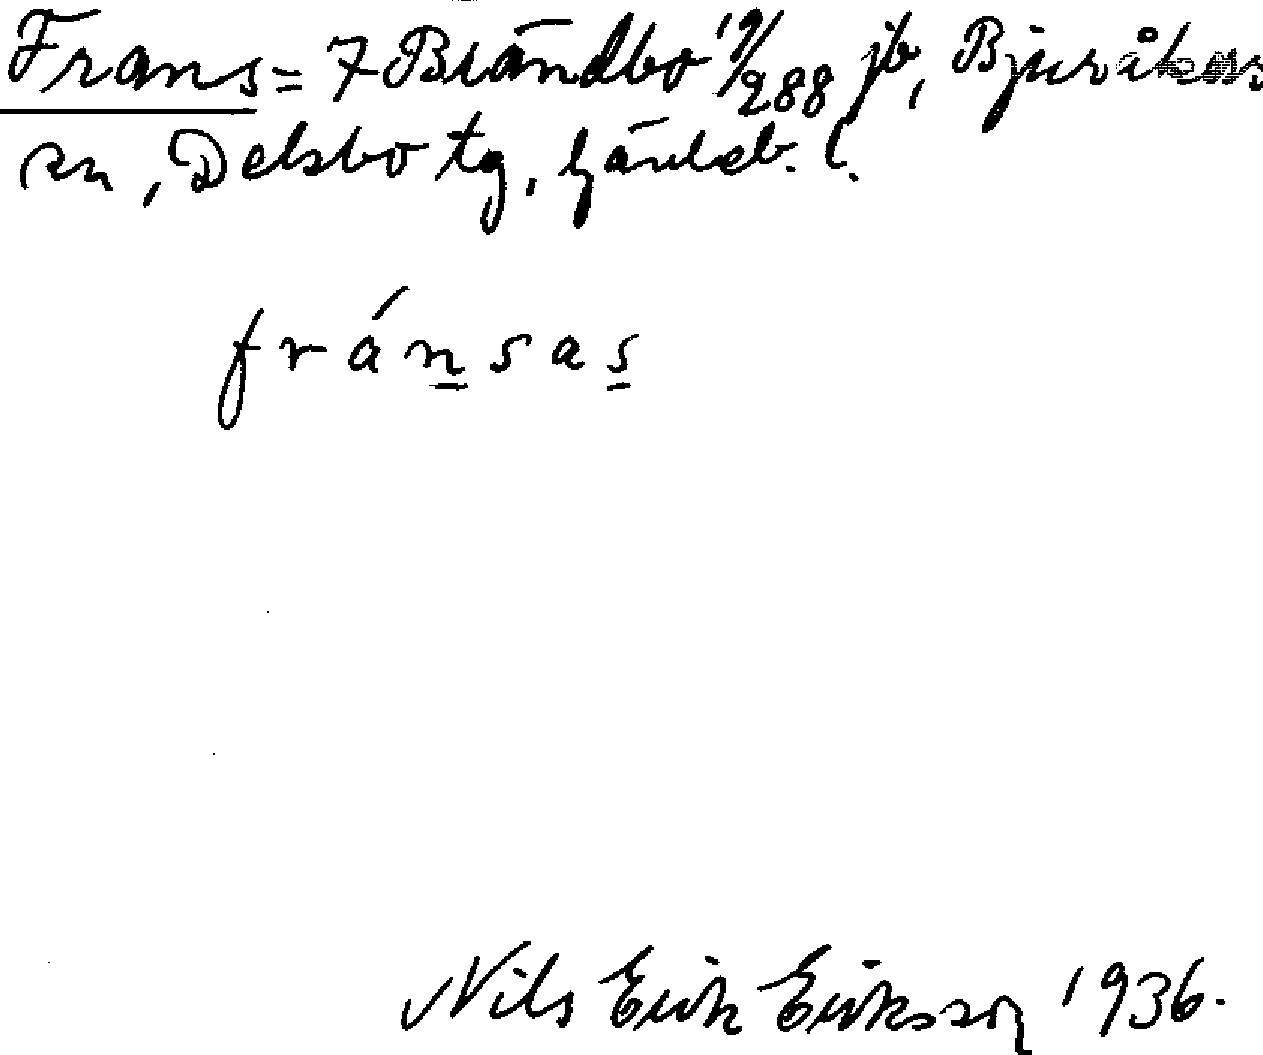 Frans = 7 Brändbo 19/288 jb, Bjuråkers
sn, Delsbo tg, Gävleb. l.
fránsas
Nils Erik Eriksson 1936.